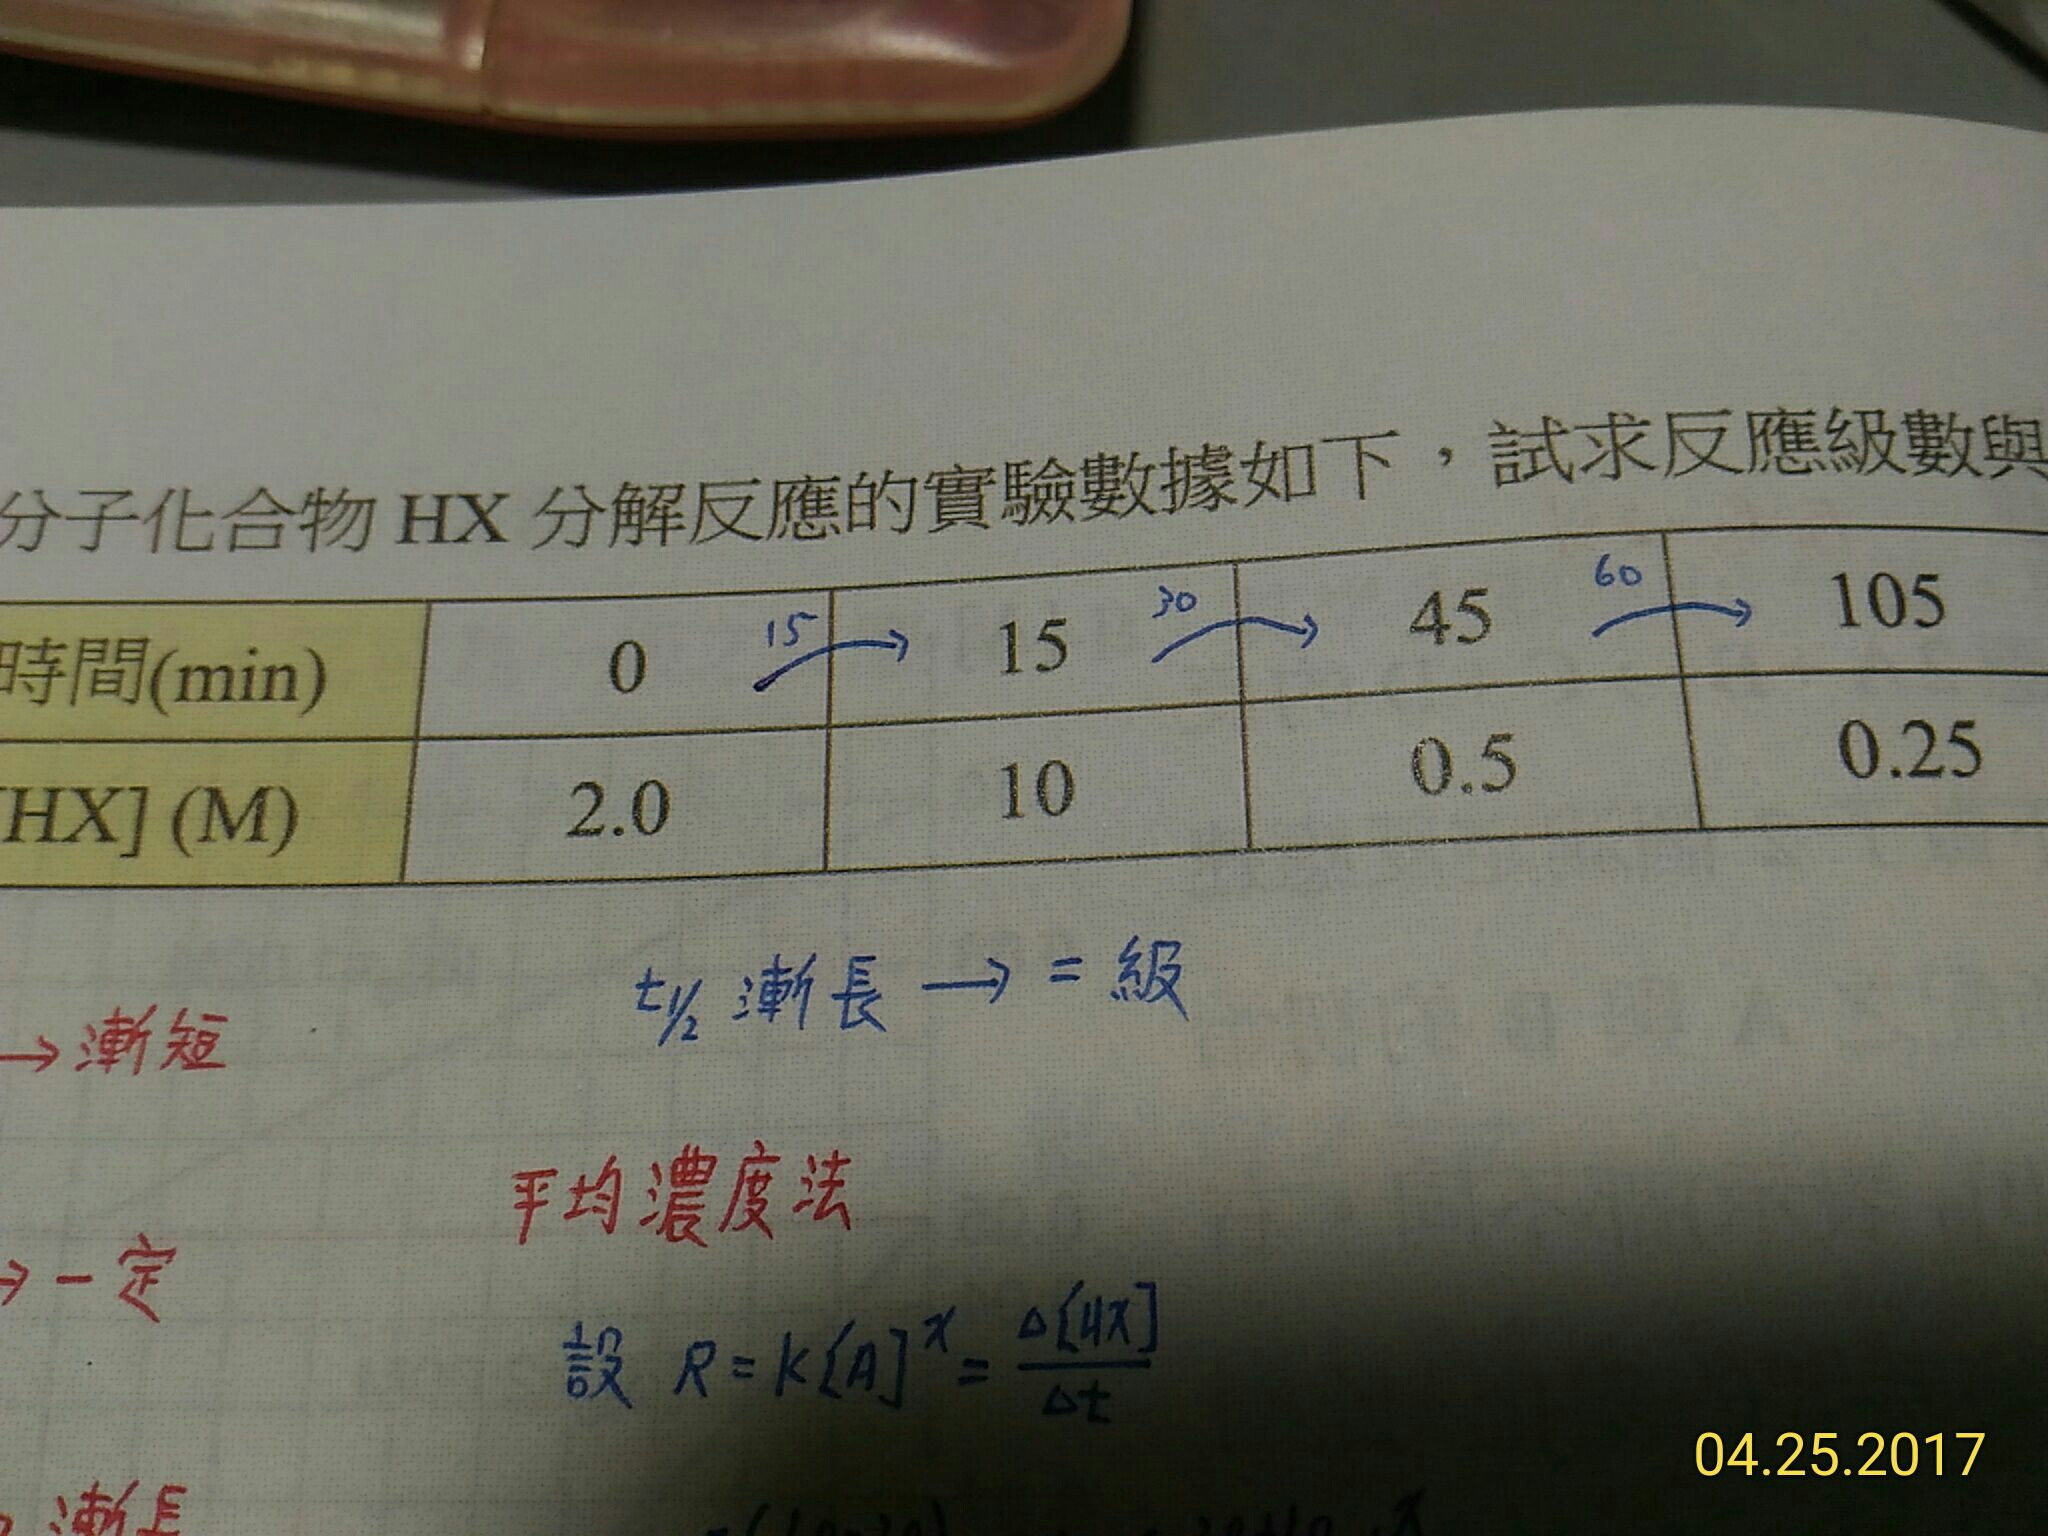 分子化合物 HX 分解反應的實驗數據如下，試求反應級數與
時間(min) 0 15 15 30 45 60 105
[HX] (M) 2.0 10 0.5 0.25
t1/2 漸長 → = 級
→ 漸短
平均濃度法
→ 一定
設 R = K[A]^x = Δ[HX]/Δt
漸長
04.25.2017